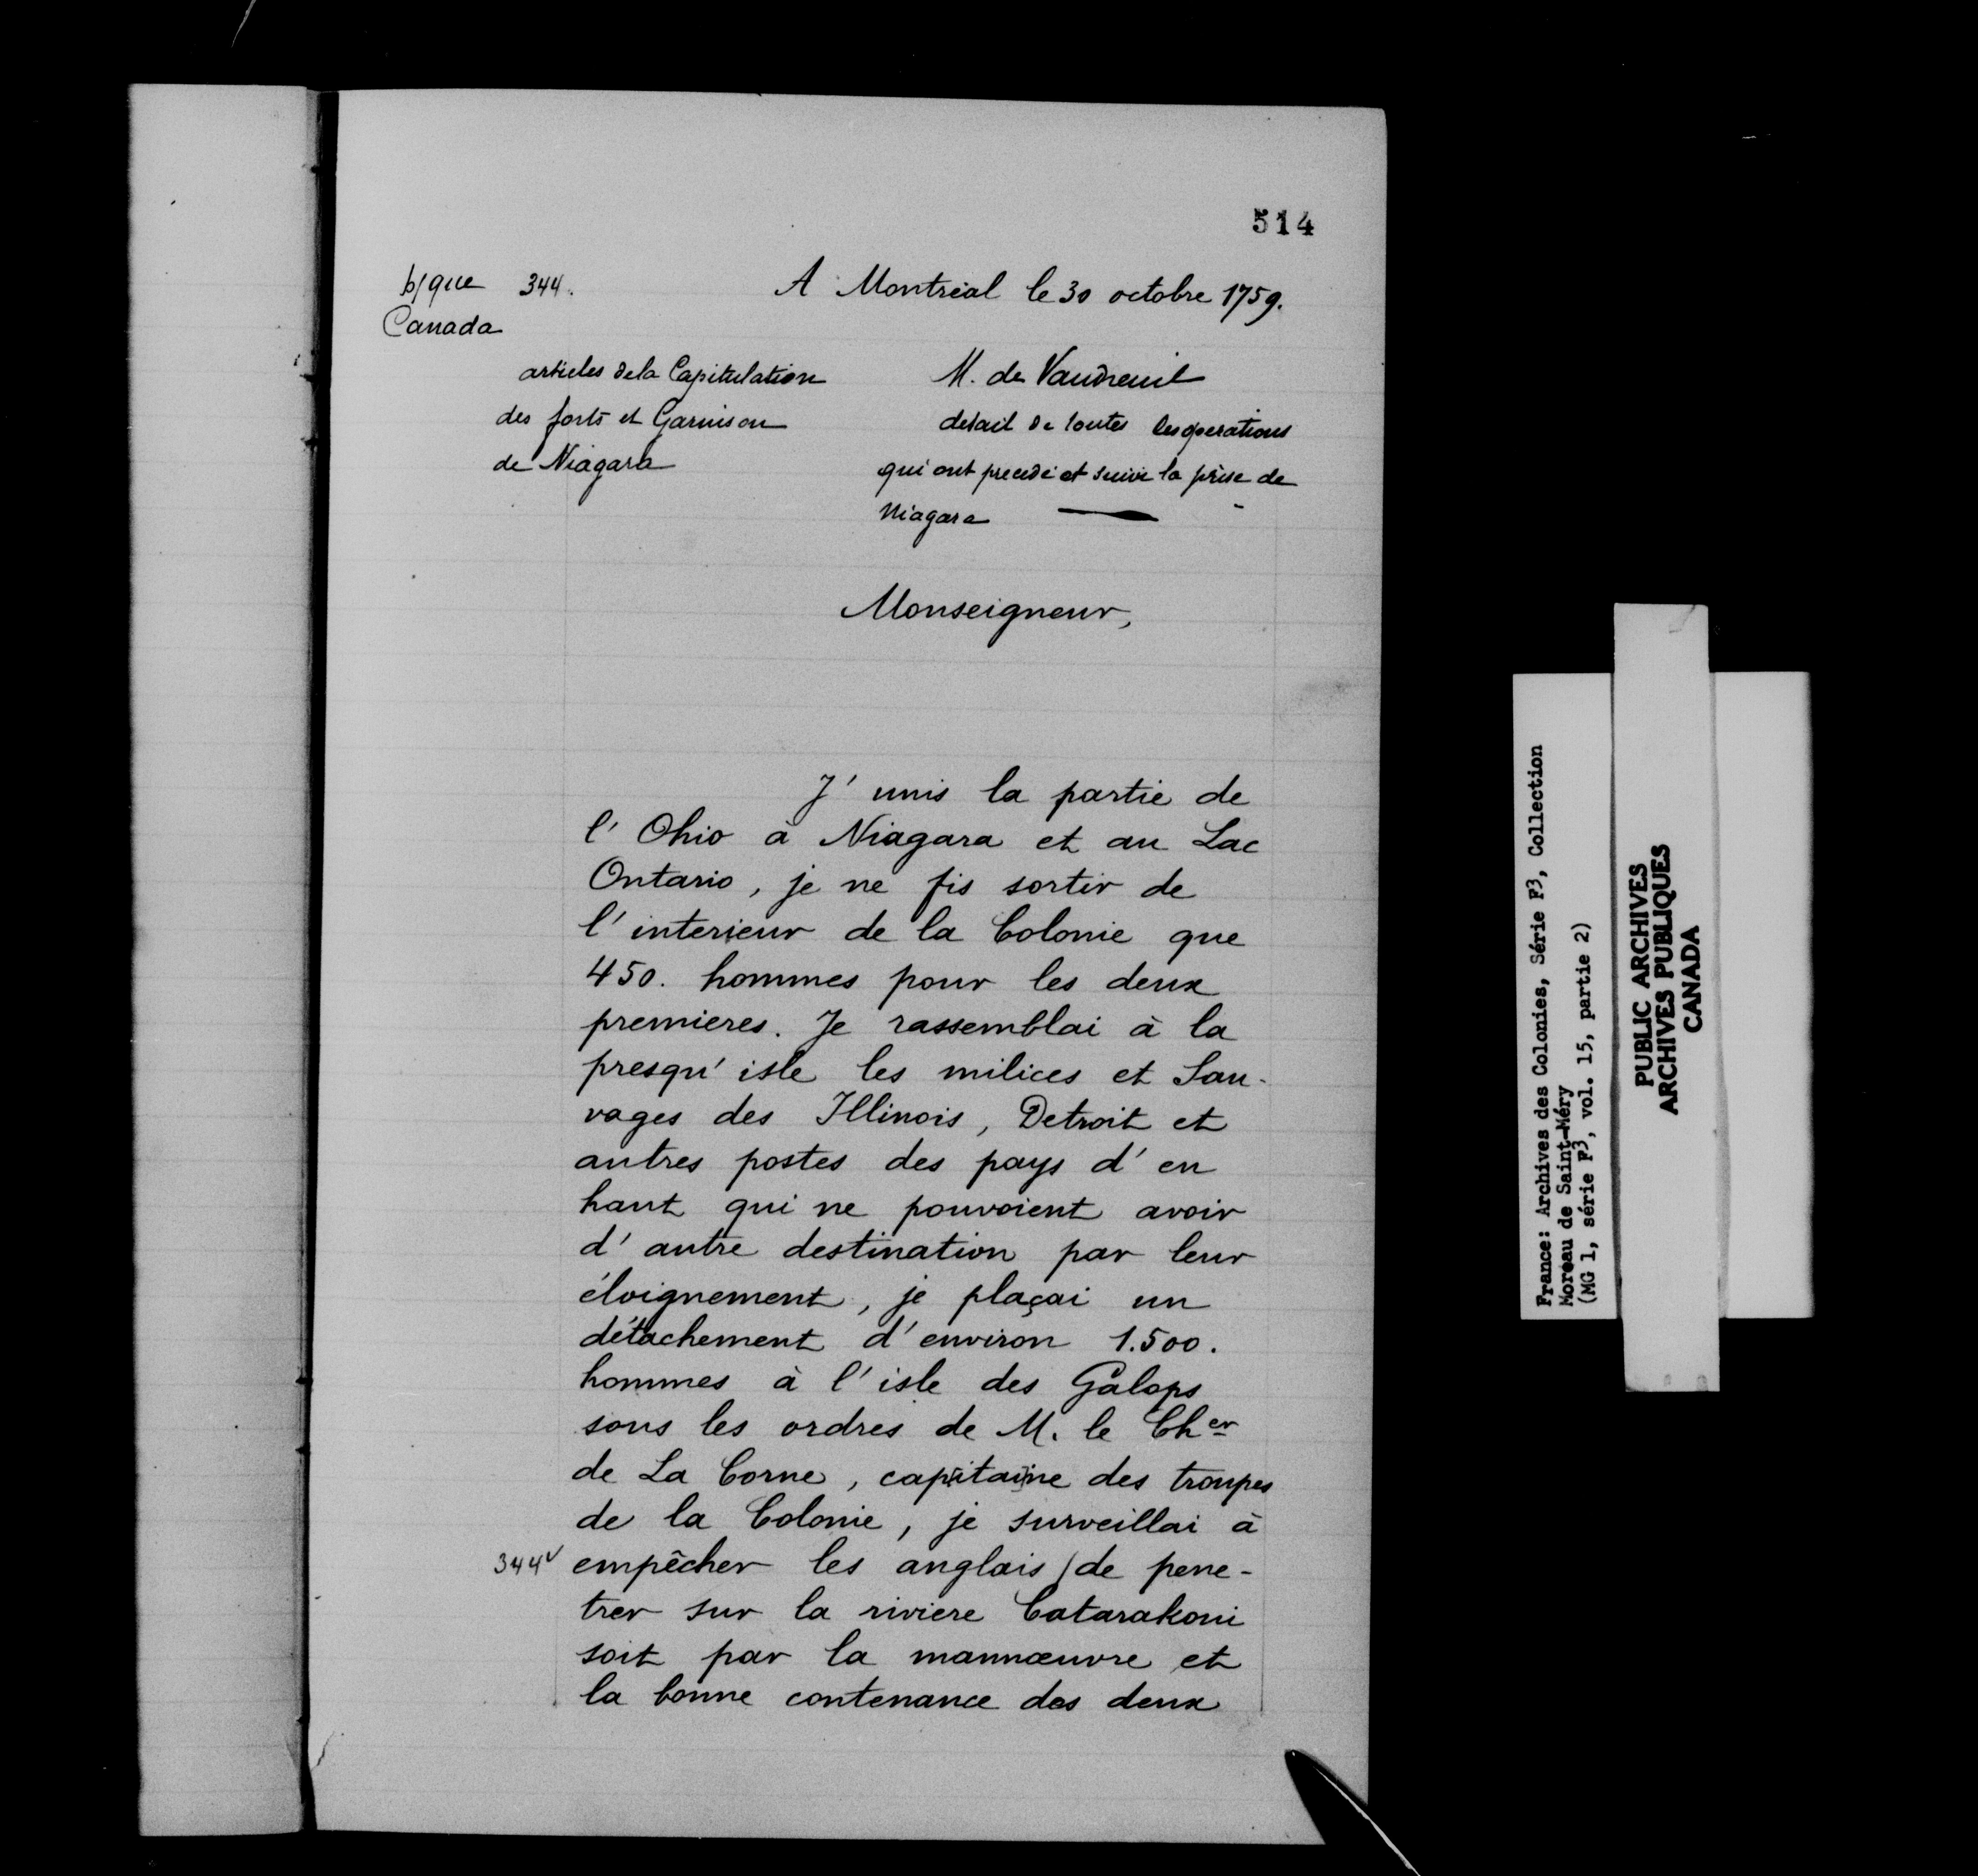 514
344.
Canada
A Montréal le 30 octobre 1759.
articles de la Capitulation
des forts et Garnison
de Niagara
M. de Vaudreuil
detail de toutes les operations
qui ont precedé et suivi la prise de
Niagara
Monseigneur,
J'unis la partie de
l'Ohio à Niagara et au Lac
Ontario, je ne fis sortir de
l'interieur de la Colonie que
450. hommes pour les deux
premieres. Je rassemblai à la
presqu'isle les milices et Sau-
vages des Illinois, Detroit et
autres postes des pays d'en
haut qui ne pouvoient avoir
d'autre destination par leur
éloignement, je plaçai un
détachement d'environ 1.500.
hommes à l'isle des Galops
sous les ordres de M. le Cher
de La Corne, capitaine des troupes
de la Colonie, je surveillai à
344v empêcher les anglais / de pene-
trer sur la riviere Catarakoui
soit par la mannœuvre et
la bonne contenance des deux
France: Archives des Colonies, Série F3, Collection
Moreau de Saint-Méry
(MG 1, série F3, vol. 15, partie 2)
PUBLIC ARCHIVES
ARCHIVES PUBLIQUES
CANADA